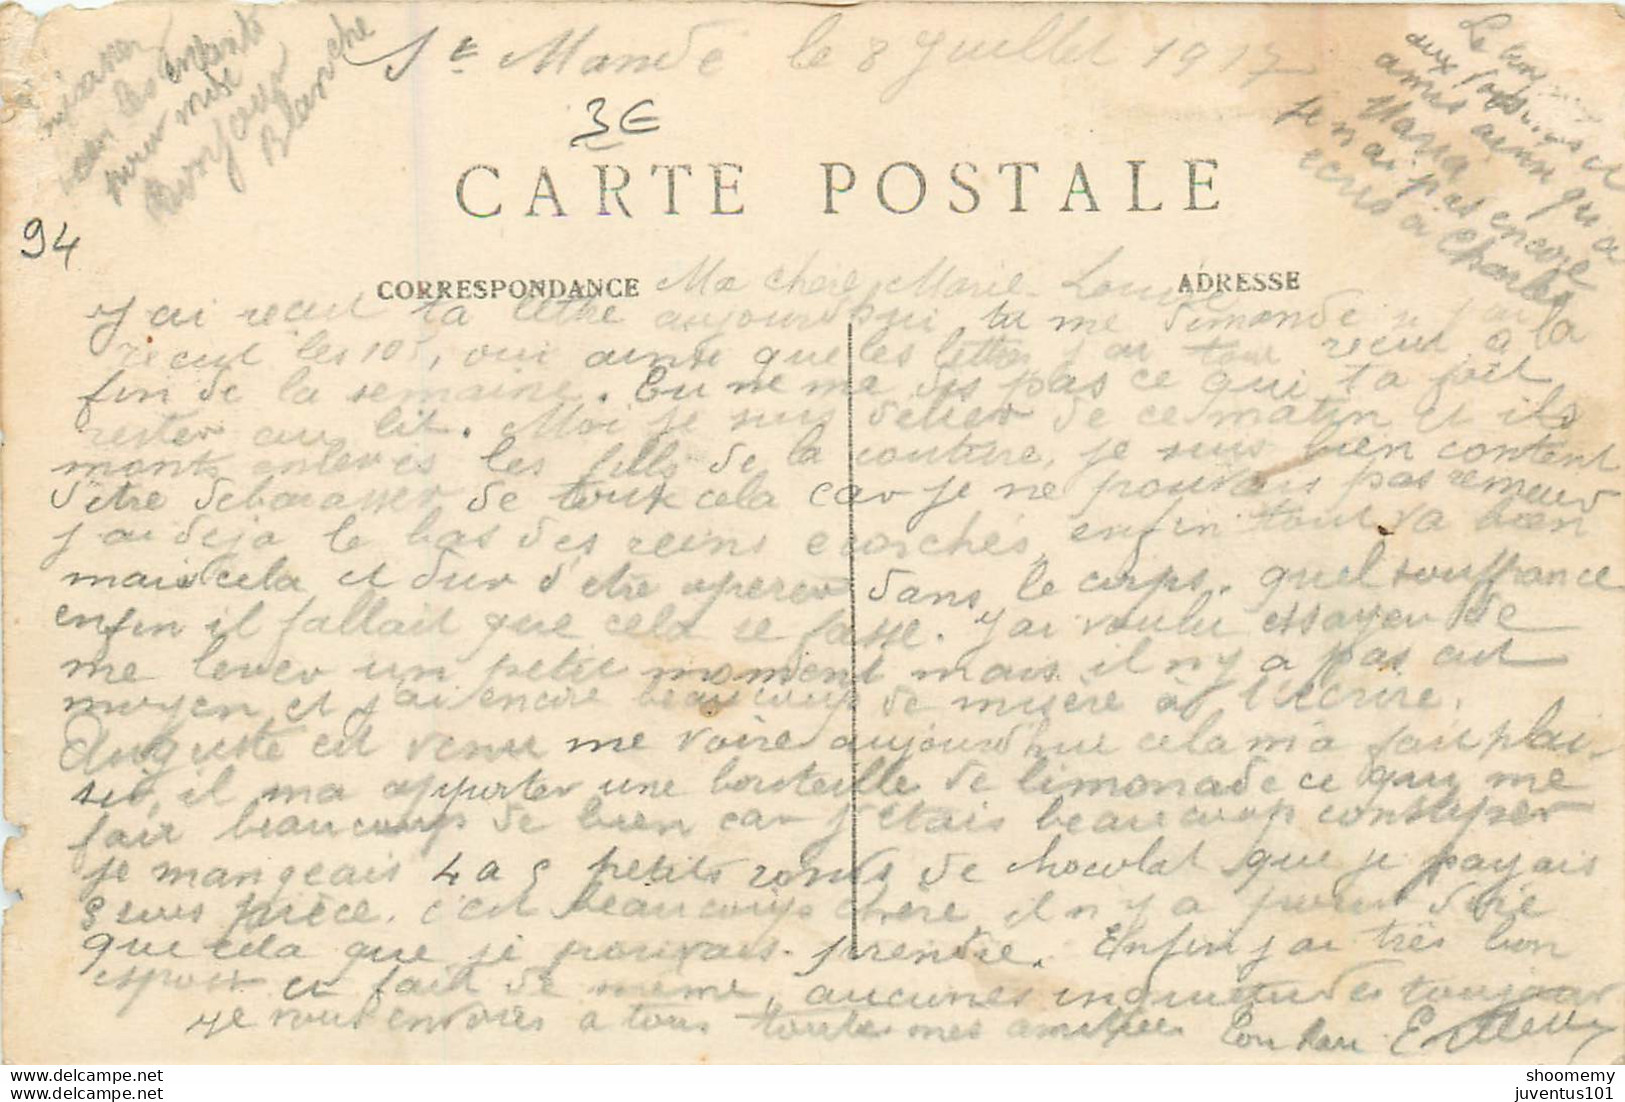 St Mandé le 8 Juillet 1917
bien les enfants
pour moi
Bonjour
Blanche
Le bonjour
aux voisins et
amis ainsi qu'a
Maria
je nai pas encore
ecris à Charles
3E
94
CARTE POSTALE
CORRESPONDANCE
ADRESSE
Ma chere Marie-Louise
J'ai recut ta lettre aujourdhui tu me demande si j'ai
recut les 10f, oui ainsi que les lettres j'ai tout recut a la
fin de la semaine. Tu ne me dis pas ce qui ta fait
rester au lit. Moi je suis délier de ce matin et ils
monts enlevés les fills de la couture, je suis bien content
d'etre debarasser de tout cela car je ne pouvais pas remeur
j'ai deja le bas des reins ecorchés, enfin tout va bien
mais cela et dur d'etre operer dans le corps. quel souffrance
enfin il fallait que cela se fasse. J'ai voulu essayer de
me lever un petit moment mais il n'y a pas eut
moyen et j'ai encore beaucoup de misère à t'ecrire.
Auguste est venu me voire aujourdhui cela m'a fait plai-
sir, il ma apporter une bouteille de limonade ce qui me
fait beaucoup de bien car j'etais beaucoup constiper
je mangeais 4 a 5 petits ronds de chocolat que je payais
sous pièce. c'est beaucoup chere il n'y a pour dire
que cela que je pouvais prendre. Enfin j'ai très bon
espoir et fait de même, aucunes inquietudes toujour
Je vous envoies a tous toutes mes amitiées Ton
shoomemy
juventus101